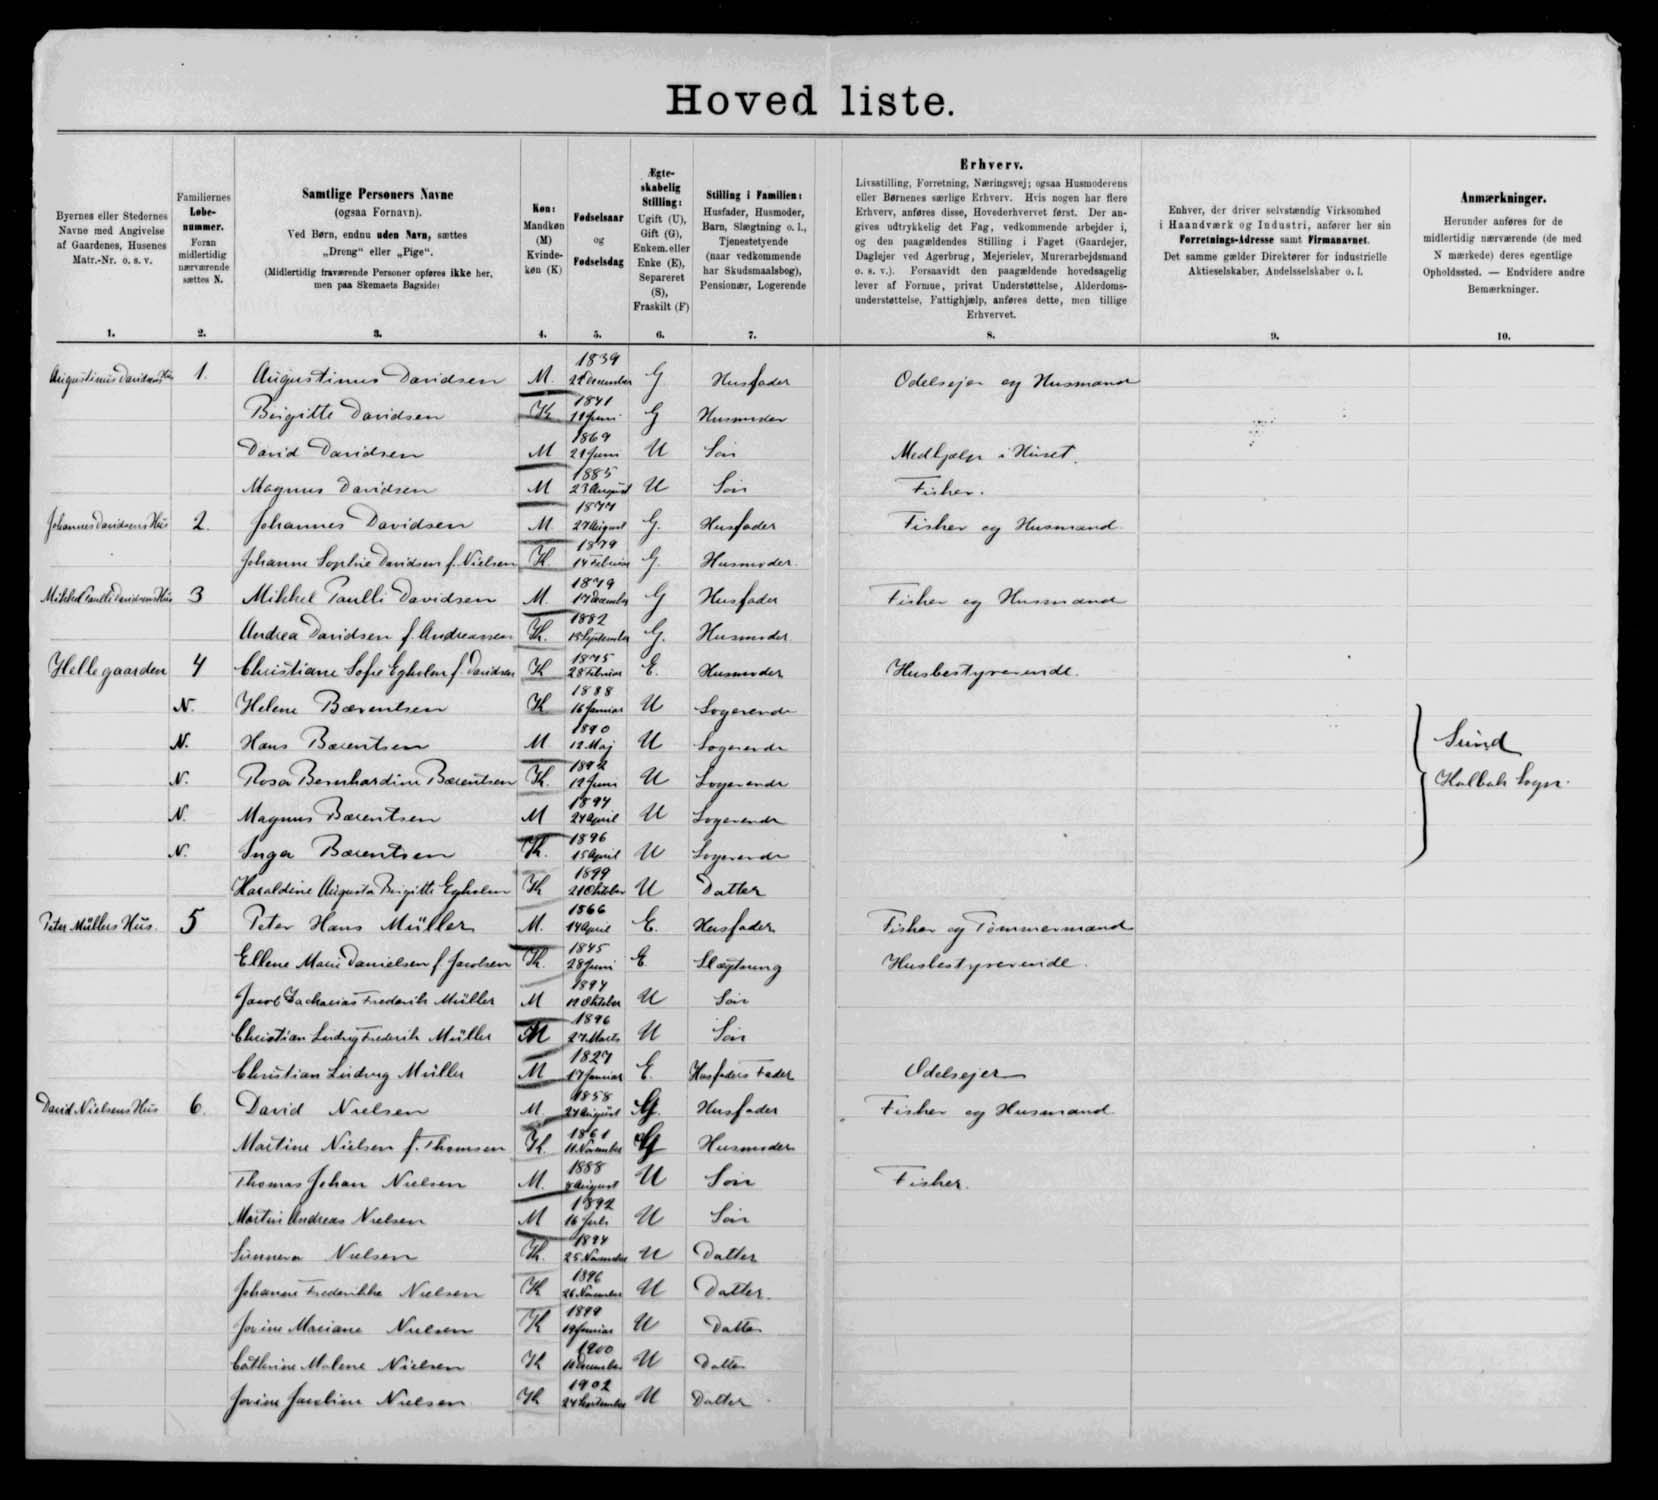 Hoved liste.
Byernes eller Stedernes Navne med Angivelse af Gaardenes, Husenes Matr.-Nr. o. s. v.
1.
Familiernes Løbenummer. Foran midlertidig nærværende sættes N.
2.
Samtlige Personers Navne
(ogsaa Fornavn).
Ved Børn, endnu uden Navn, sættes
„Dreng“ eller „Pige“.
(Midlertidig fraværende Personer opføres ikke her,
men paa Skemaets Bagside)
3.
Køn:
Mandkøn (M) Kvindekøn (K)
4.
Fødselsaar
og
Fødselsdag
5.
Ægteskabelig Stilling:
Ugift (U), Gift (G), Enkem. eller Enke (E), Separeret (S), Fraskilt (F)
6.
Stilling i Familien:
Husfader, Husmoder, Barn, Slægtning o. l., Tjenestetyende (naar vedkommende har Skudsmaalsbog), Pensionær, Logerende
7.
Erhverv.
Livsstilling, Forretning, Næringsvej; ogsaa Husmoderens
eller Børnenes særlige Erhverv. Hvis nogen har flere
Erhverv, anføres disse, Hovederhvervet først. Der an-
gives udtrykkelig det Fag, vedkommende arbejder i,
og den paagældendes Stilling i Faget (Gaardejer,
Daglejer ved Agerbrug, Mejerielev, Murerarbejdsmand
o. s. v.). Forsaavidt den paagældende hovedsagelig
lever af Formue, privat Understøttelse, Alderdoms-
understøttelse, Fattighjælp, anføres dette, men tillige
Erhvervet.
8.
Enhver, der driver selvstændig Virksomhed
i Haandværk og Industri, anfører her sin
Forretnings-Adresse samt Firmanavnet.
Det samme gælder Direktører for industrielle
Aktieselskaber, Andelsselskaber o. l.
9.
Anmærkninger.
Herunder anføres for de
midlertidig nærværende (de med
N mærkede) deres egentlige
Opholdssted. — Endvidere andre
Bemærkninger.
10.
Augustinus Davidsens Hus 1. Augustinus Davidsen M. 1839 December G Husfader Odelsejer og Husmand
Birgitte Davidsen K 1841 Juni G Husmoder
David Davidsen M 1869 Juni U Søn Medhjælp i Huset.
Magnus Davidsen M 1885 23 August U Søn Fisker.
Johannes Davidsens Hus 2. Johannes Davidsen M. 1877 27 August G. Husfader Fisker og Husmand
Johanne Sophie Davidsen f. Nielsen K. 1879 14 Februar G. Husmoder.
Mikkel Paulli Davidsens Hus 3 Mikkel Paulli Davidsen M. 1879 17 December G Husfader Fisker og Husmand
Andrea Davidsen f. Andreassen K. 1882 18 September G. Husmoder
Hellegaarden 4 Christiane Sofie Egholm f. Davidsen K 1875 28 Februar E. Husmoder Husbestyrerinde.
N. Helene Bærentsen K 1888 16 Januar U Logerende
N. Hans Bærentsen M 1890 12 Maj U Logerende Sund
N. Rosa Bernhardine Bærentsen K. 1892 12 Juni U Logerende Kalbak Sogn.
N. Magnus Bærentsen M 1894 24 April U Logerende
N. Inga Bærentsen K. 1896 15 April U Logerende
Haraldine Augusta Birgitte Egholm K 1899 21 Oktober U Datter
Peter Müllers Hus. 5 Peter Hans Müller M. 1866 14 April E. Husfader Fisker og Tømmermand
Ellene Marie Danielsen f. Jacobsen K. 1845 28 Juni E. Slægtning Husbestyrerinde.
Jacob Zacharias Frederik Müller M 1894 Oktober U Søn
Christian Ludvig Frederik Müller M 1896 27 Marts U Søn
Christian Ludvig Müller M 1827 17 Januar E. Husfaders Fader Odelsejer
David Nielsens Hus 6. David Nielsen M 1858 24 August G. Husfader Fisker og Husmand
Martine Nielsen f. Thomsen K. 1861 11 November G Husmoder
Thomas Johan Nielsen M. 1888 August U Søn Fisker.
Martin Andreas Nielsen M 1892 16 Juli U Søn
Sunneva Nielsen K. 1894 25 November U Datter
Johanne Frederikke Nielsen K 1896 26 November U Datter.
Jovine Mariane Nielsen K 1899 19 Januar U Datter
Cathrine Malene Nielsen K 1900 December U Datter
Jovine Jacobine Nielsen K 1902 24 September U Datter